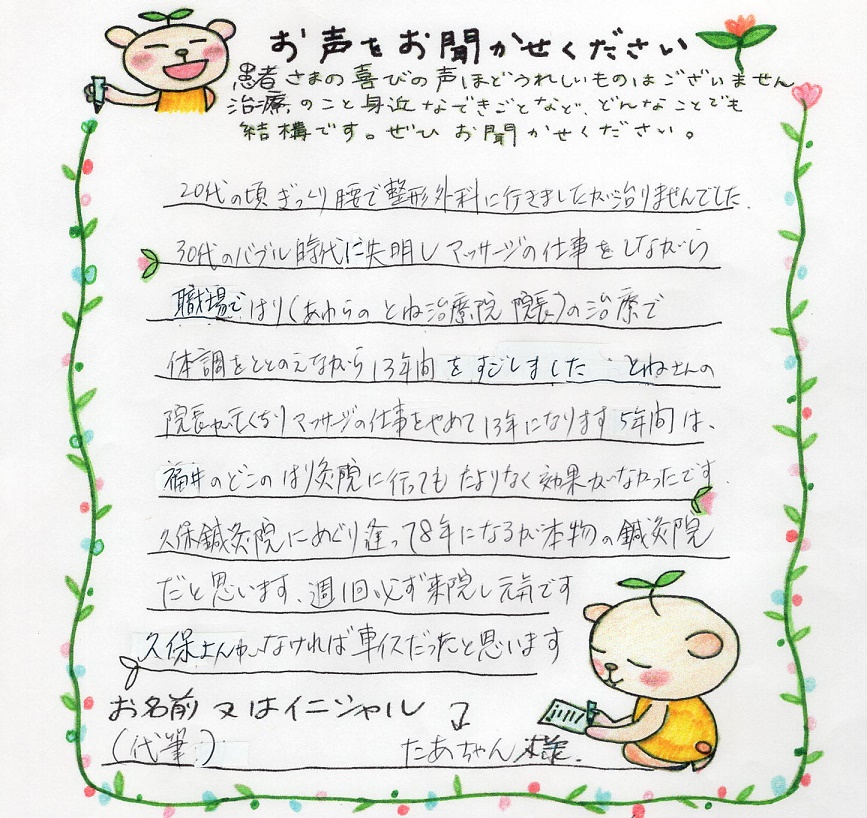 お声をお聞かせください
患者さまの喜びの声ほどうれしいものはございません
治療のこと身近なできごとなど、どんなことでも
結構です。ぜひお聞かせください。
20代の頃ぎっくり腰で整形外科に行きましたが治りませんでした.
30代のバブル時代に失明しマッサージの仕事をしながら
職場ではり(あわらのとね治療院 院長)の治療で
体調をととのえながら13年間をすごしました とねさんの
院長がなくなりマッサージの仕事をやめて13年になります 5年間は、
福井のどこのはり灸院に行ってもたよりなく効果がなかったです.
久保鍼灸院にめぐり逢って8年になるが本物の鍼灸院
だと思います、週1回必ず来院し元気です
久保さんがいなければ車イスだったと思います
お名前又はイニシャル
(代筆) たあちゃん様.